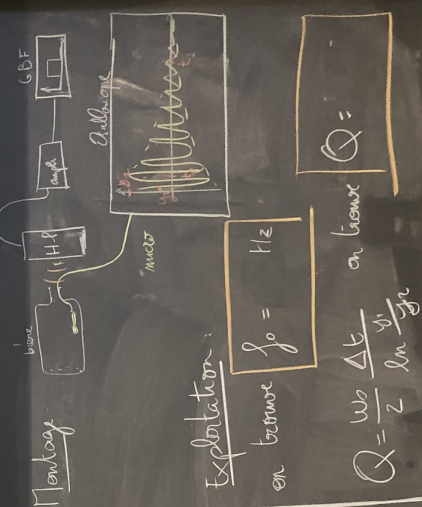 Montage
bière
HP
ampli
GBF
micro
Oscilloscope
Exploitation :
on trouve
f₀ = Hz
Q = ω₀/2 Δt/ln y₁/y₂
on trouve
Q =